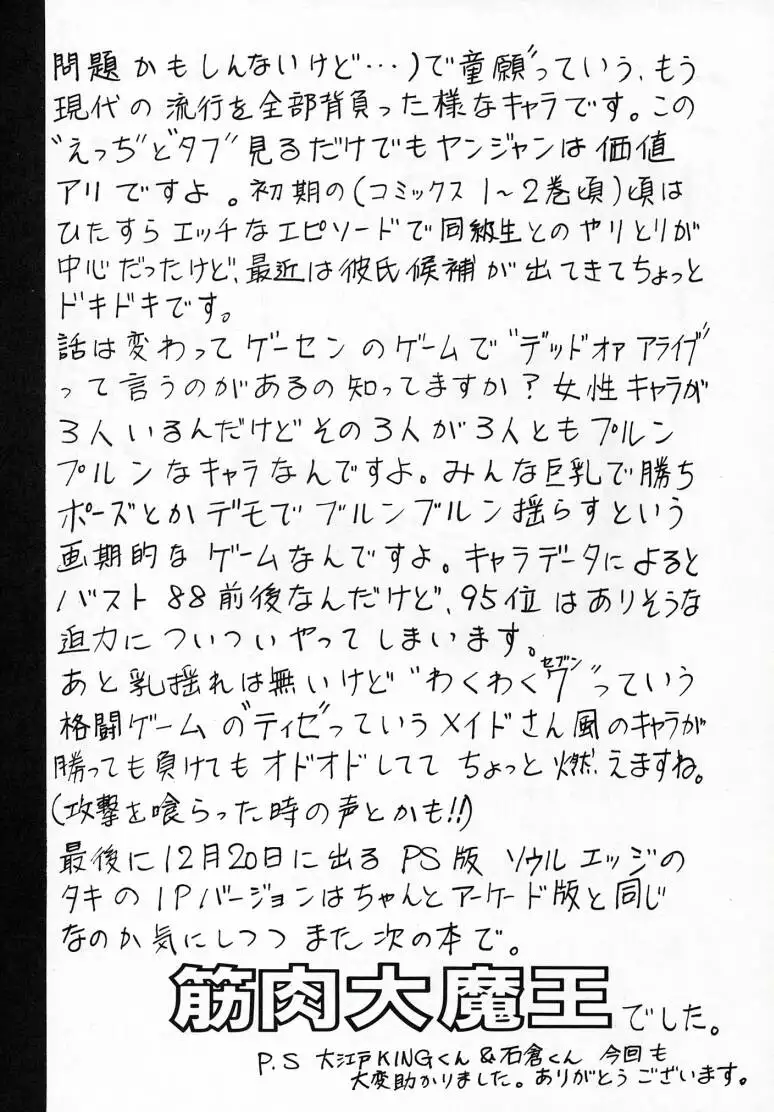 問題かもしんないけど…)で童願”っていう、もう
現代の流行を全部背負った様なキャラです。この
“えっぢ”と“タブ”見るだけでもヤンジャンは価値
アリですよ。初期の(コミックス1〜2巻頃)頃は
ひたすらエッチなエピソードで同級生とのやりとりが
中心だったけど、最近は彼氏候補が出てきてちょっと
ドキドキです。
話は変わってゲーセンのゲームで“デッドオァアライブ”
って言うのがあるの知ってますか?女性キャラが
3人いるんだけどその3人が3人ともプルン
プルンなキャラなんですよ。みんな巨乳で勝ち
ポーズとかデモでブルンブルン揺らすという
画期的なゲームなんですよ。キャラデータによると
バスト88前後なんだけど、95位はありそうな
迫力についついやってしまいます。
あと乳揺れは無いけど“わくわく7”っていう
セブン
格闘ゲームの“ティゼ”っていうメイドさん風のキャラが
勝っても負けてもオドオドしててちょっと燃えますね。
(攻撃を喰らった時の声とかも!!)
最後に12月20日に出るPS版ソウルエッジの
タキの1Pバージョンはちゃんとアーケード版と同じ
なのか気にしつつまた次の本で。
筋肉大魔王でした。
P.S 大江戸KINGくん&石倉くん 今回も
大変助かりました。ありがとうございます。